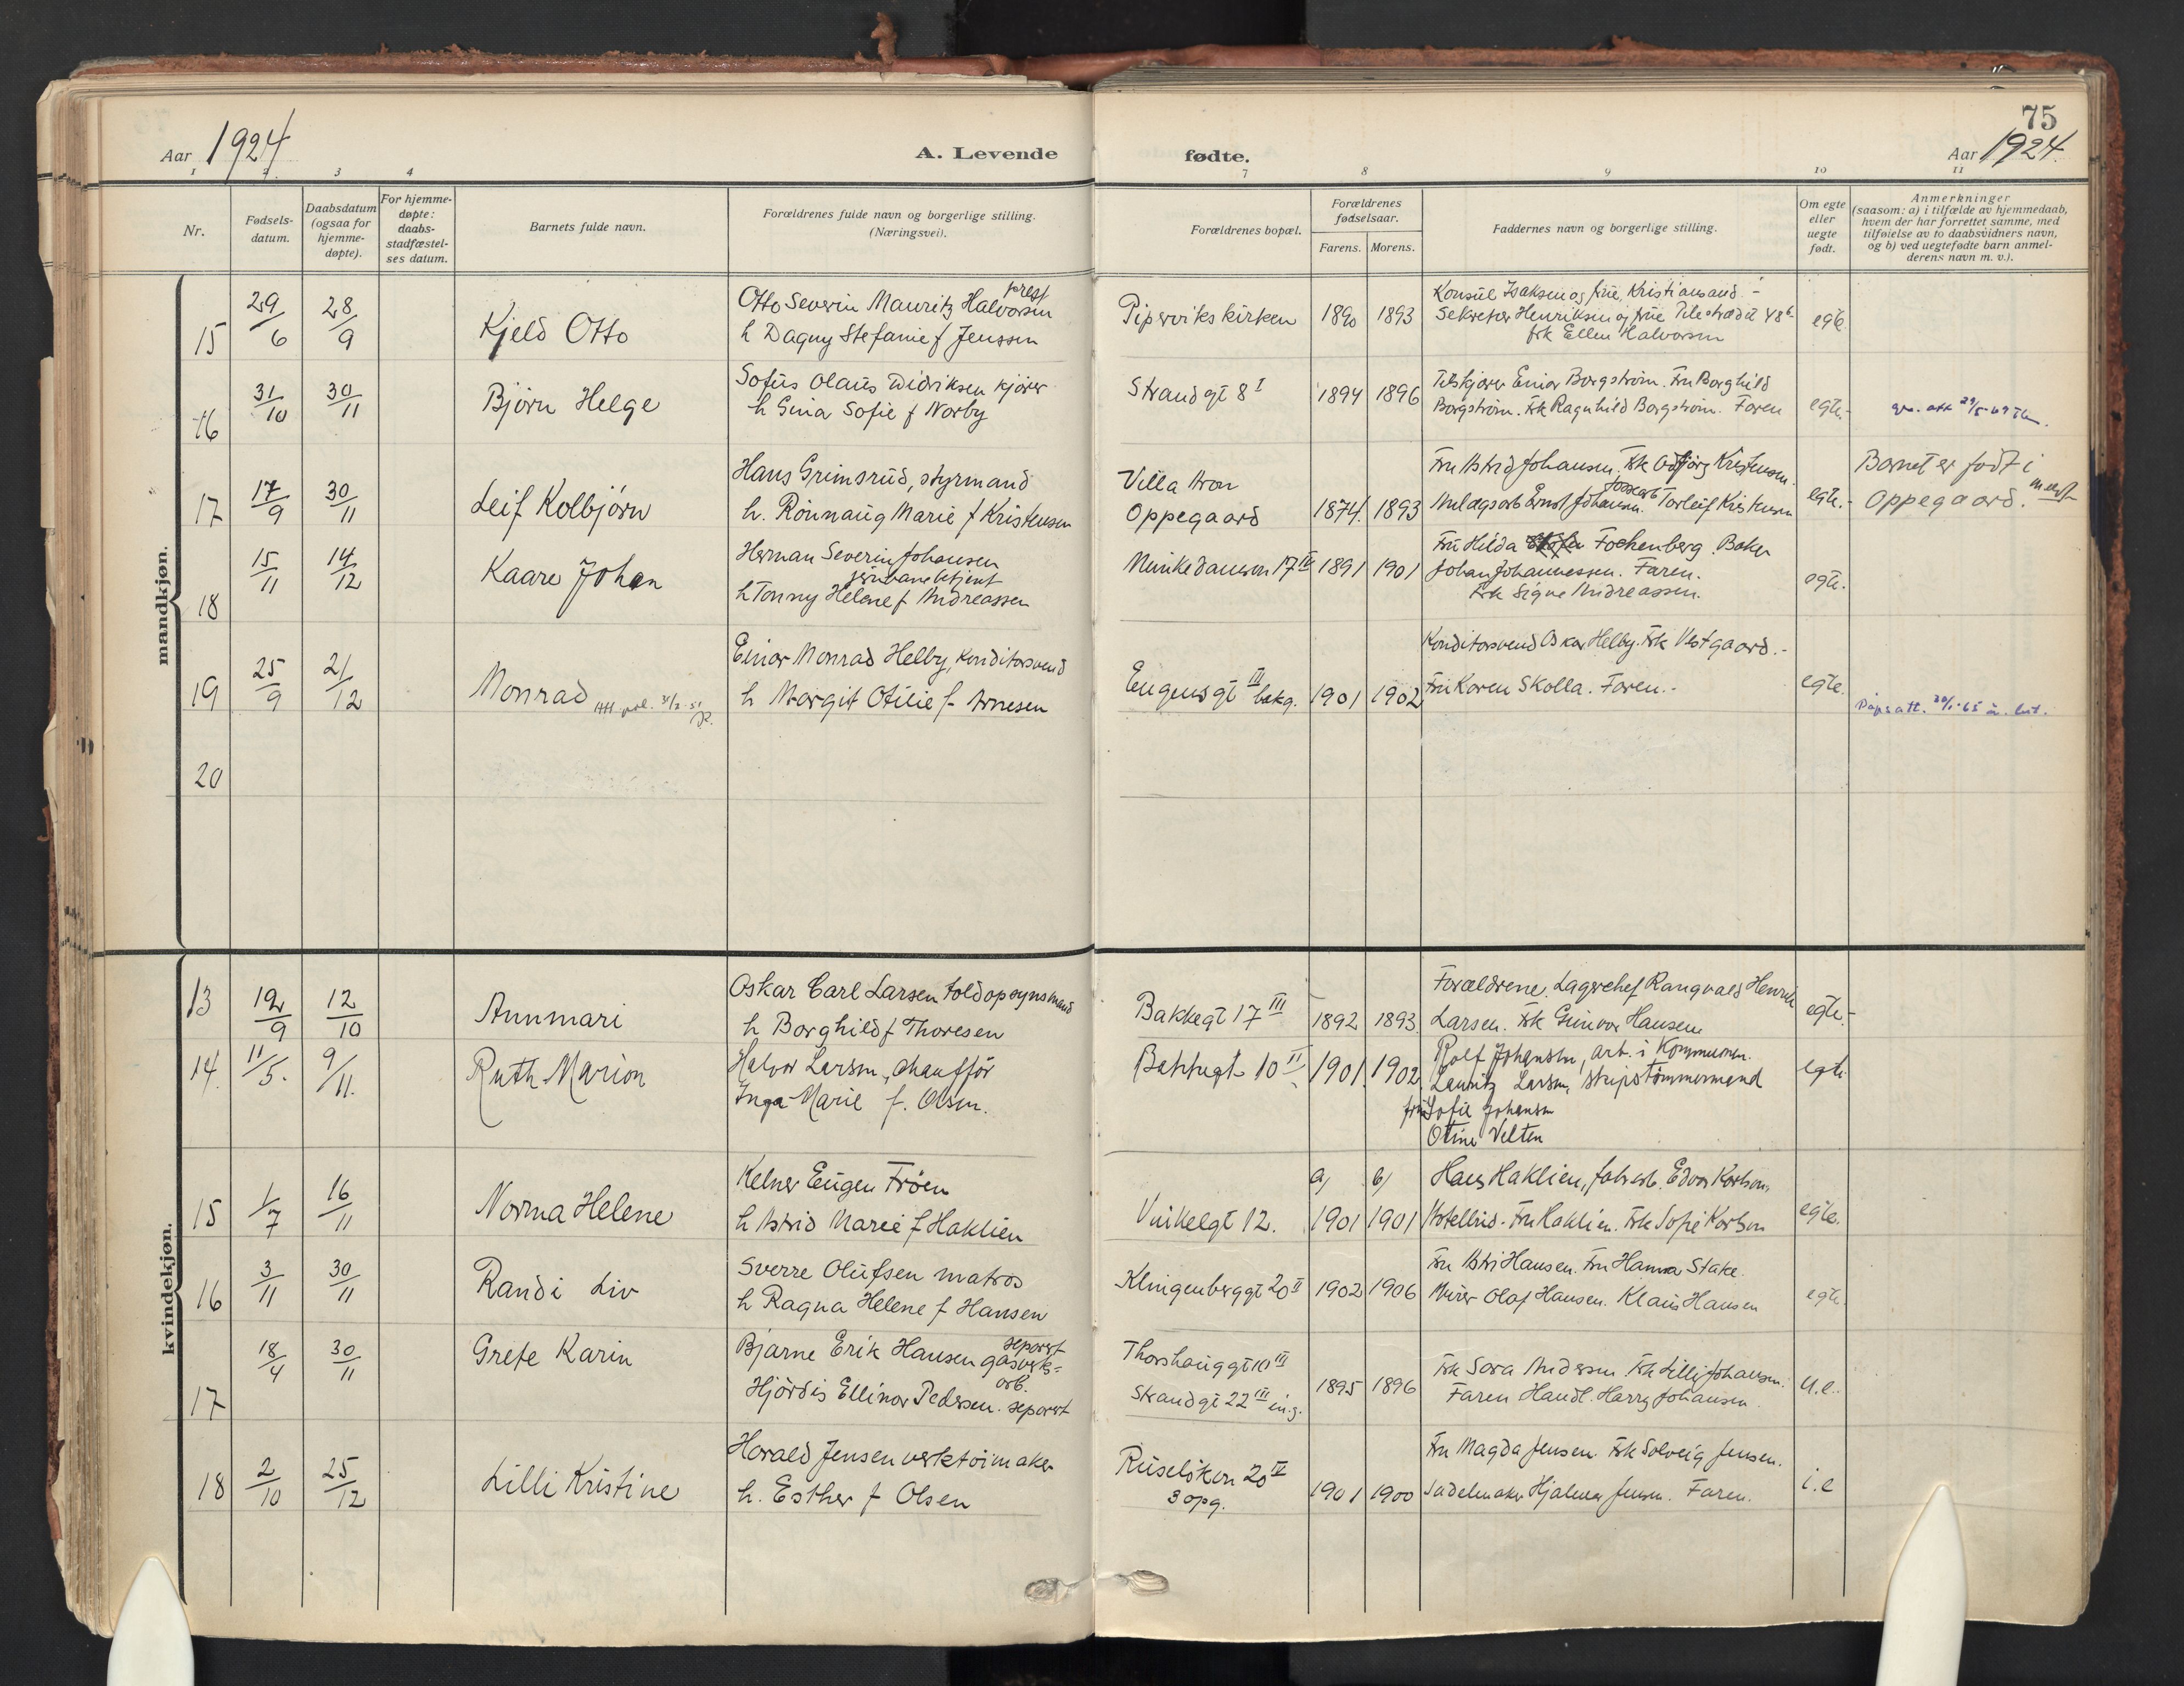 75
Aar 1924
A. Levende fødte.
Aar 1924.
1 2. 3 4 7 8 9 10 11
Nr.
Fødsels-datum.
Daabsdatum (ogsaa for hjemme-døpte).
For hjemme-døpte: daabs-stadfæstel-ses datum.
Barnets fulde navn.
Forældrenes fulde navn og borgerlige stilling. (Næringsvei).
Forældrenes bopæl.
Forældrenes fødselsaar.
Farens. Morens.
Faddernes navn og borgerlige stilling.
Om egte eller uegte født.
Anmerkninger
(saasom: a) i tilfælde av hjemmedaab,
hvem der har forrettet samme, med
tilføielse av to daabsvidners navn,
og b) ved uegtefødte barn anmel-
derens navn m. v.).
mandkjøn.
15 29/6 28/9 Kjeld Otto
Otto Severin Mauritz Halvorsen prest
h Dagny Stefanie f Jenssen
Piperviks kirken 1890 1893
Konsul Isaksen og frue, Kristiansand. -
Sekretær Henriksen og frue Pilestrædet 48
frk Ellen Halvorsen
egte.
16 31/10 30/11 Bjørn Helge
Sofus Olaus Didriksen kjører
h Gina Sofie f Norby
Strandgt 8 I 1894 1896
Einar Borgstrøm. Fru Borghild
Borgstrøm. Frk Ragnhild Borgstrøm. Faren
egte.
17 17/9 30/11 Leif Kolbjørn
Hans Grimsrud, styrmand
h. Rønnaug Marie f Kristensen
Villa
Oppegaard 1874. 1893
Fru Astrid Johansen. Frk Odbjørg Kristensen.
Ernst Johansen. Torleif Kristensen
egte.-
Barnet er født i
Oppegaard.
18 15/11 14/12 Kaare Johan
Herman Severin Johansen
jernbanebetjent
h Tonny Helene f Andreassen
Munkedamsvn 17 IV 1891 1901
Fru Hilda Fockenberg. Baker
Johan Johannessen. Faren.
Frk Signe Andreassen.
egte.
19 25/9 21/12 Monrad
Einar Monrad Helby, Konditorsvend
h Margit Otilie f Arnesen
Eugensgt III bakg. 1901 1902
Konditorsvend Oskar Helby. Frk Vestgaard.-
Fru Karen Skolla. Faren.-
egte.
Dåpsatt. 20/1-65
20
kvindekjøn.
13 12/9 12/10 Annmari
Oskar Carl Larsen toldopsynsmand
h Borghild f Thoresen
Bakkegt 17 III 1892 1893
Forældrene. Lagerchef Rangvald Henrik
Larsen. Frk Gunvor Hansen
egte.-
14. 11/5. 9/11. Ruth Marion
Halvor Larsen, chauffør
Inga Marie f. Olsen.
Bakkegt 10 II 1901. 1902
Rolf Johansen, arb. i Kommunen.
Lauritz Larsen, skipstømmermand
fru Sofie Johansen
Otine Velten
egte.
15 1/7 16/11 Norma Helene
Kelner Eugen Frøen
h Astrid Marie f Haklien
Vinkelgt 12. a, 1901 b, 1901
Hans Haklien, fabr.arb. Edvar Karlsen,
Hotellbud. Fru Haklien. Frk Sofie Karlsen
egte.
16 3/11 30/11 Randi Liv
Sverre Olufsen matros
h Ragna Helene f Hansen
Klingenberggt 20 II 1902 1906
Fru Astri Hansen. Fru Hanna Stake.
Murer Olaf Hansen. Klaus Hansen
egte.
17 18/4 30/11 Grete Karin
Bjarne Erik Hansen separert gasverks=
arb.
Hjørdis Ellinor Pedersen. separert
Thorshauggt 10 III
Strandgt 22 III in.g. 1895 1896
Frk Sara Andersen. Frk Lilly Johansen.
Faren Handl. Harry Johansen.
u.e.
18 2/10 25/12 Lilli Kristine
Harald Jensen verktøimaker
h. Esther f Olsen
Ruseløkvn 20 IV
3 opg. 1901 1900
Fru Magda Jensen. Frk Solveig Jensen.
Sadelmaker Hjalmar Jensen. Faren.
i.e